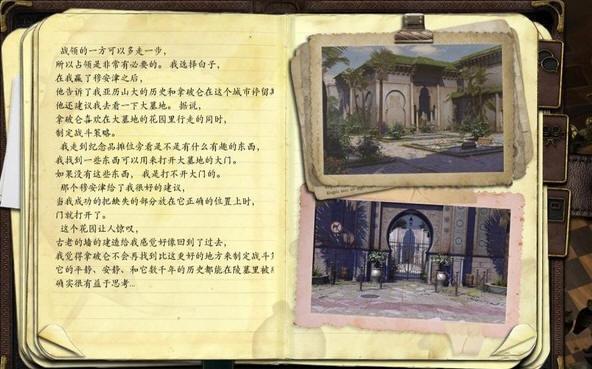 战领的一方可以多走一步，
所以占领是非常有必要的。 我选择白子，
在我赢了穆安津之后，
他告诉了我亚历山大的历史和拿破仑在这个城市停留
他还建议我去看一下大墓地。 据说，
拿破仑喜欢在大墓地的花园里行走的同时，
制定战斗策略。
我走到纪念品摊位旁看是不是有什么有趣的东西，
我找到一些东西可以用来打开大墓地的大门。
如果没有这些东西， 我是打不开大门的。
那个穆安津给了我很好的建议，
当我成功的把缺失的部分放在它正确的位置上时，
门就打开了。
这个花园让人惊叹，
古老的墙的建造给我感觉好像回到了过去，
我觉得拿破仑不会再找到比这更好的地方来制定战斗
它的平静、安静、和它数千年的历史都能在陵墓里被
确实很有益于思考...